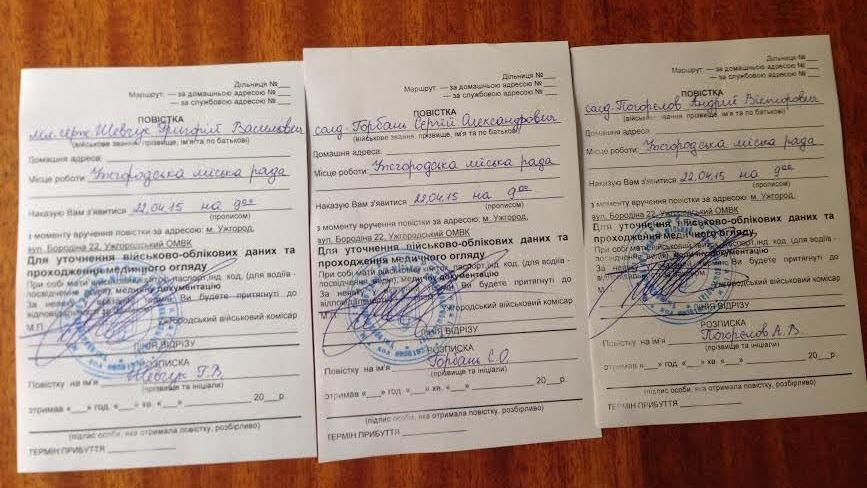 Дільниця №___
Маршрут: — за домашньою адресою №___
— за службовою адресою №___
ПОВІСТКА
мл. серж Шевчук Григорій Васильович
(військове звання, прізвище, ім'я та по батькові)
Домашня адреса:
Місце роботи: Ужгородська міська рада
Наказую Вам з'явитися 22.04.15 на 9 00
(прописом)
з моменту вручення повістки за адресою: м. Ужгород,
вул. Бородіна 22, Ужгородський ОМВК
Для уточнення військово-облікових даних та
проходження медичного огляду
При собі мати військовий квиток, паспорт, інд. код, (для водіїв -
посвідчення водія), медичну документацію
За неявку у вказаний термін Ви будете притягнуті до
відповідальності за
М.П. Ужгородський військовий комісар
ЛІНІЯ ВІДРІЗУ
РОЗПИСКА
Повістку на ім'я Шевчук Г.В.
(прізвище та ініціали)
отримав «___» год. «___» хв. «___» 20___р.
(підпис особи, яка отримала повістку, розбірливо)
ТЕРМІН ПРИБУТТЯ
Дільниця №___
Маршрут: — за домашньою адресою №___
— за службовою адресою №___
ПОВІСТКА
солд. Горбань Сергій Олександрович
(військове звання, прізвище, ім'я та по батькові)
Домашня адреса:
Місце роботи: Ужгородська міська рада
Наказую Вам з'явитися 22.04.15 на 9 00
(прописом)
з моменту вручення повістки за адресою: м. Ужгород,
вул. Бородіна 22, Ужгородський ОМВК
Для уточнення військово-облікових даних та
проходження медичного огляду
При собі мати військовий квиток, паспорт, інд. код, (для водіїв -
посвідчення водія), медичну документацію
За неявку у вказаний термін Ви будете притягнуті до
відповідальності за
М.П. Ужгородський військовий комісар
ЛІНІЯ ВІДРІЗУ
РОЗПИСКА
Повістку на ім'я Горбань С.О.
(прізвище та ініціали)
отримав «___» год. «___» хв. «___» 20___р.
(підпис особи, яка отримала повістку, розбірливо)
ТЕРМІН ПРИБУТТЯ
Дільниця №___
Маршрут: — за домашньою адресою №___
— за службовою адресою №___
ПОВІСТКА
солд. Погорєлов Андрій Вікторович
(військове звання, прізвище, ім'я та по батькові)
Домашня адреса:
Місце роботи: Ужгородська міська рада
Наказую Вам з'явитися 22.04.15 на 9 00
(прописом)
з моменту вручення повістки за адресою: м. Ужгород,
вул. Бородіна 22, Ужгородський ОМВК
Для уточнення військово-облікових даних та
проходження медичного огляду
При собі мати військовий квиток, паспорт, інд. код, (для водіїв -
посвідчення водія), медичну документацію
За неявку у вказаний термін Ви будете притягнуті до
відповідальності за
М.П. Ужгородський військовий комісар
ЛІНІЯ ВІДРІЗУ
РОЗПИСКА
Повістку на ім'я Погорєлов А.В.
(прізвище та ініціали)
отримав «___» год. «___» хв. «___» 20___р.
(підпис особи, яка отримала повістку, розбірливо)
ТЕРМІН ПРИБУТТЯ